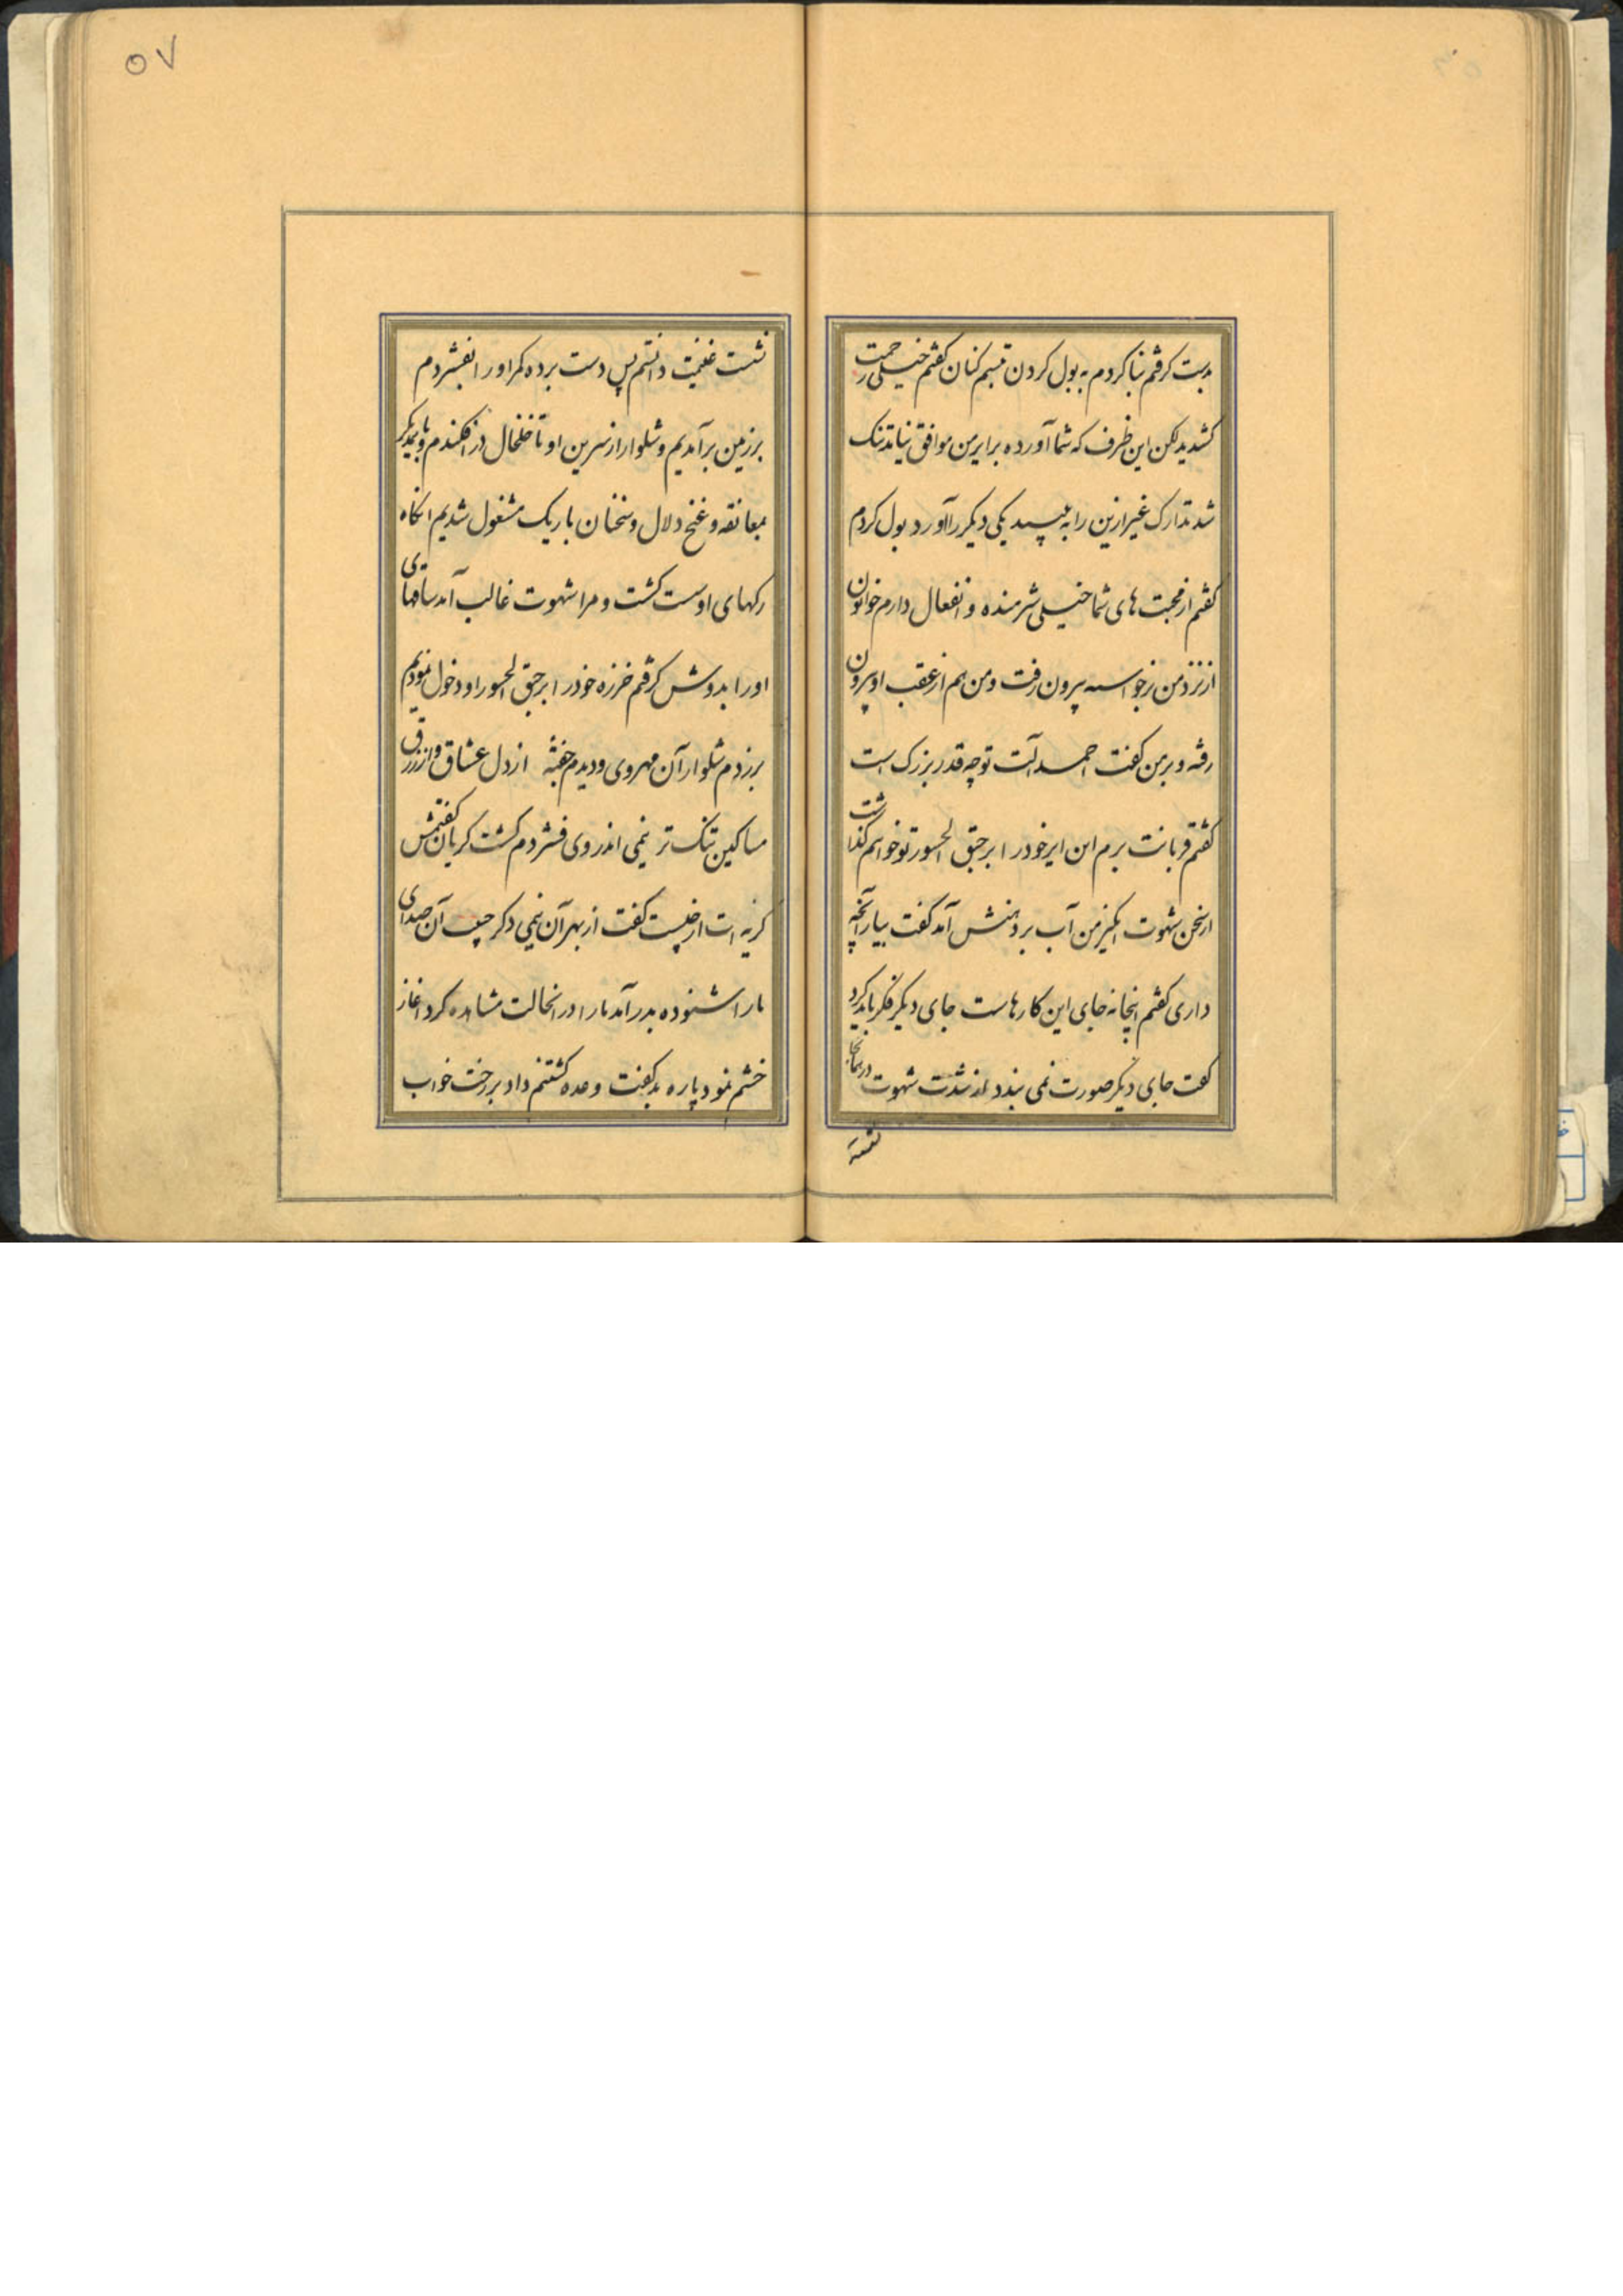 بدست گرفتم بنا کردم به بول کردن تبسم کنان گفتم خیلی زحمت
کشدید لکن این ظرف که شما آورده برایرمن موافق نیامد تنک
شد تدارک غیر ازین را به بینید یکی دیکر را آورد بول کردم
کفتم از محبت های شما خیلی شرمنده و انفعال دارم خواتون
از نزد من برخواسته بیرون رفت و من هم از عقب او بیرون
رفته و برمن کفت احمد آلت تو چه قدر بزرک است
کفتم قربانت برم این ایر خود را بر جق الحسور تو خواهم کذاشت
از سخن شهوت انکیز من آب بر دهنش آمد کفت بیار آنچه
داری کفتم اینجا نه جای این کارهاست جای دیکر فکر باید کرد
کفت جای دیکر صورت نمی بندد از شدت شهوت در همانجا
نشسته
نشست غنیمت دانستم پس دست برده کمر او را بفشردم
بر زمین برآمدیم و شلوار از سرین او تا خلخال در افکندم و با یکدیکر
بمعانقه و غنج و دلال و سخنان باریک مشغول شدیم انکاه
رکهای او سست کشت و مرا شهوت غالب آمد ساقهای
او را بدوش کرفتم خرزه خود را بر جق الحسور او دخول نمودیم
برزدم شلوار آن مهروی و دیدم حقهٔ از دل عشاق و از رزق
مساکین تنک تر نیمی اندر وی فشردم کشت کریان کفتمش
کریه ات از چیست کفت از بهر آن نیمی دکر آن صدای
ما را شنوده بدر آمد ما را در انحالت مشاهده کرد اغاز
خشم نمود پاره بد کفت و وعده کشتنم داد بر رخت خواب
۵۷